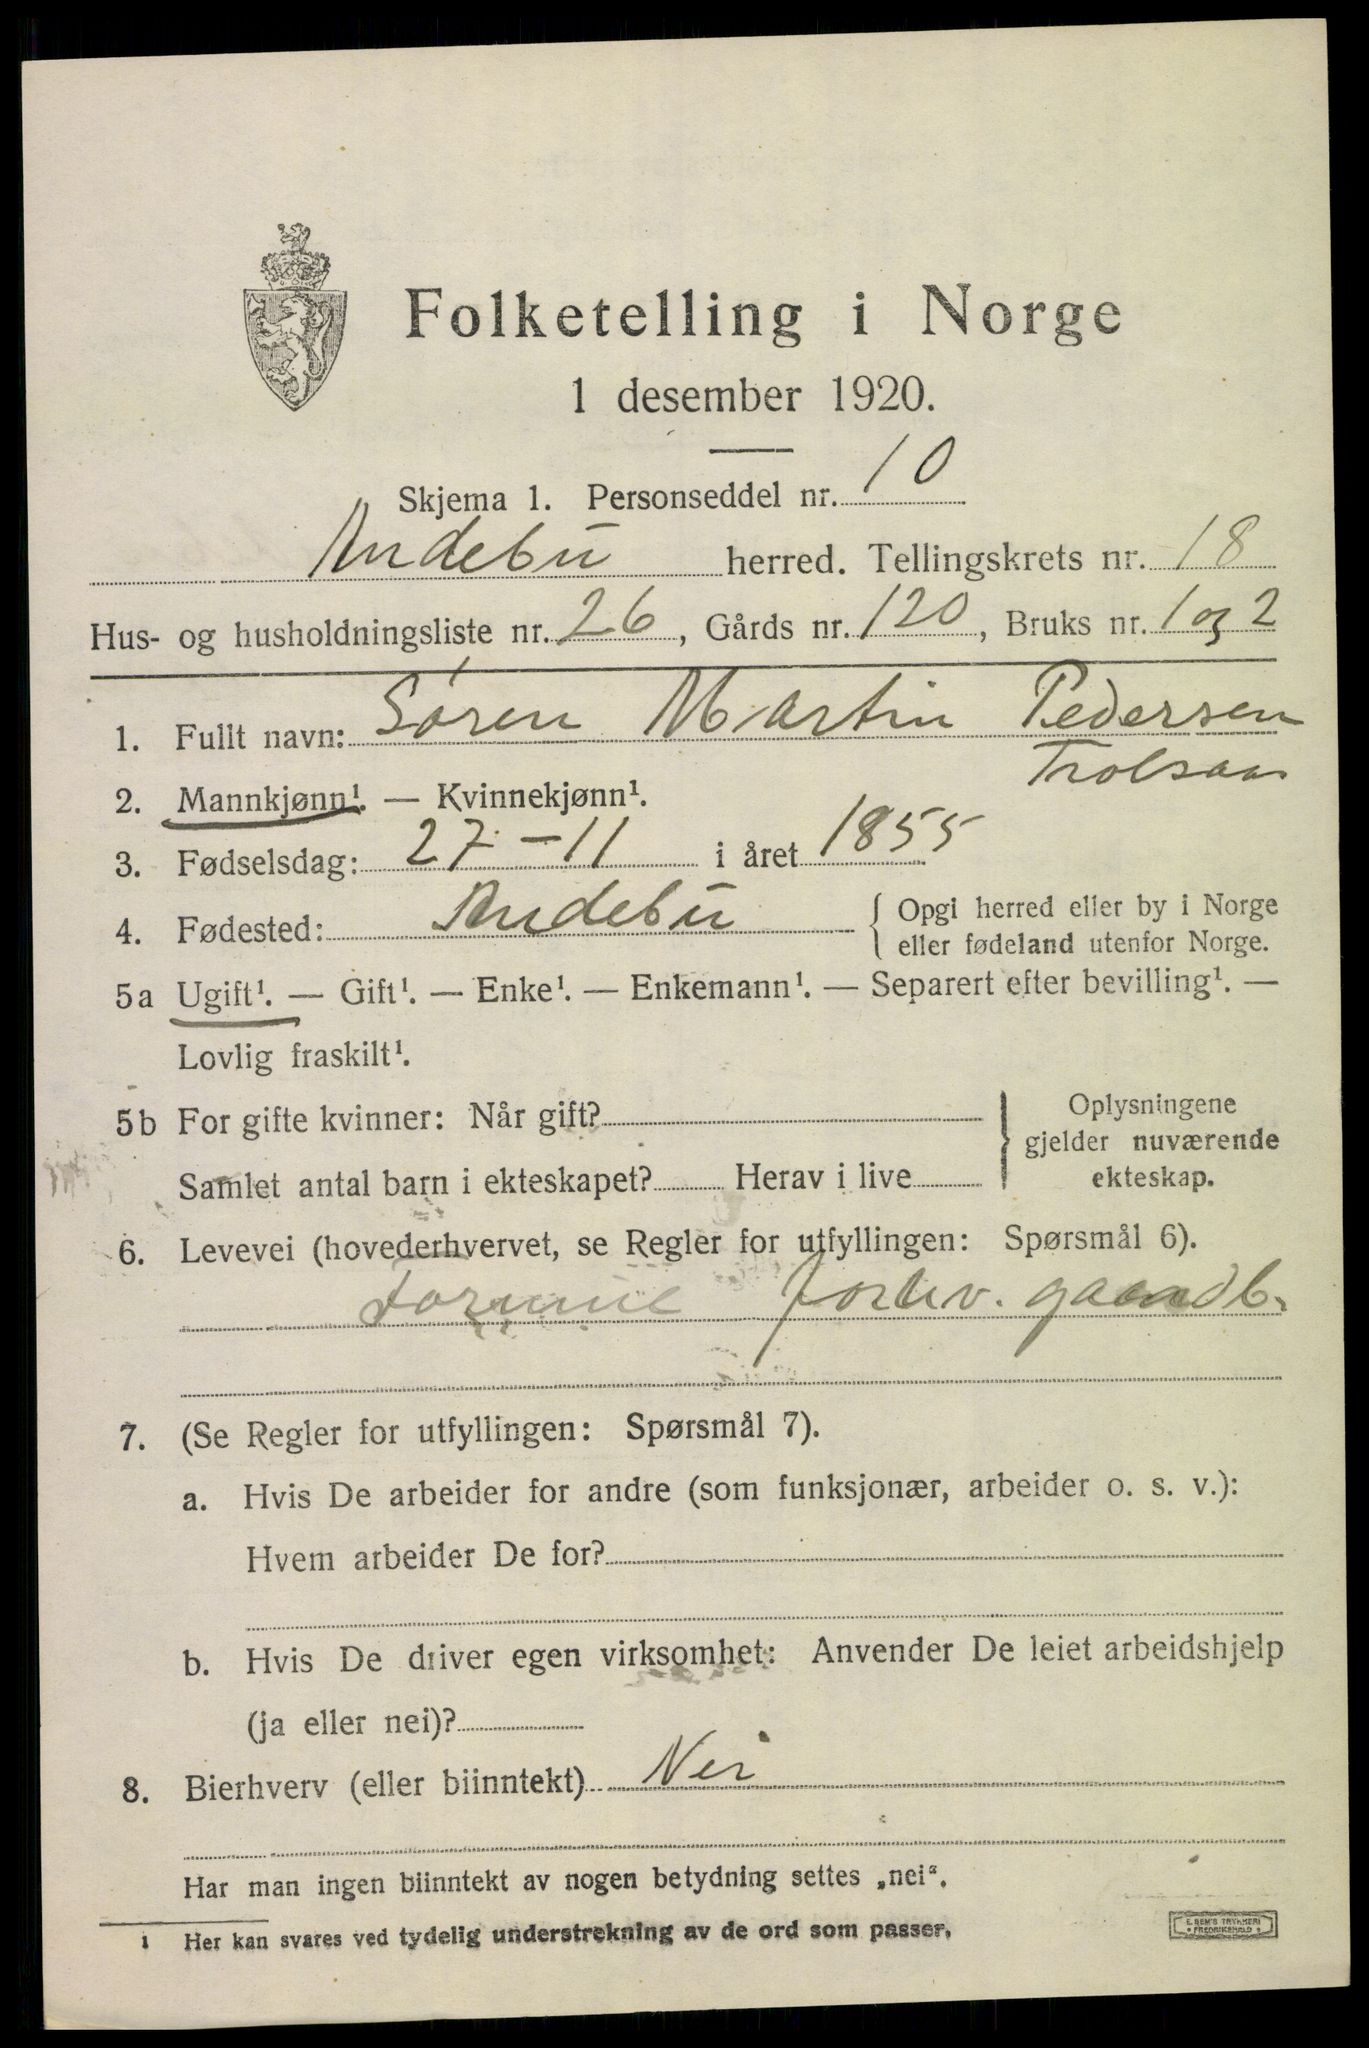 Folketelling i Norge
1 desember 1920.
Skjema 1. Personseddel nr. 10
Andebu herred. Tellingskrets nr. 18
Hus- og husholdningsliste nr. 26, Gårds nr. 120, Bruks nr. 1 og 2
1. Fullt navn: Søren Martin Pedersen
Trolsaas
2. Mannkjønn¹. — Kvinnekjønn¹.
3. Fødselsdag: 27-11 i året 1855
4. Fødested: Andebu { Opgi herred eller by i Norge
eller fødeland utenfor Norge.
5a Ugift¹. — Gift¹. — Enke¹. — Enkemann¹. — Separert efter bevilling¹. —
Lovlig fraskilt¹.
5b For gifte kvinner: Når gift?
Samlet antal barn i ekteskapet? Herav i live
} Oplysningene
gjelder nuværende
ekteskap.
6. Levevei (hovederhvervet, se Regler for utfyllingen: Spørsmål 6).
forhv. gaardb.
7. (Se Regler for utfyllingen: Spørsmål 7).
a. Hvis De arbeider for andre (som funksjonær, arbeider o. s. v.):
Hvem arbeider De for?
b. Hvis De driver egen virksomhet: Anvender De leiet arbeidshjelp
(ja eller nei)?
8. Bierhverv (eller biinntekt) Nei
Har man ingen biinntekt av nogen betydning settes „nei“.
1 Her kan svares ved tydelig understrekning av de ord som passer.
E. SEM'S TRYKKERI
FREDRIKSHALD